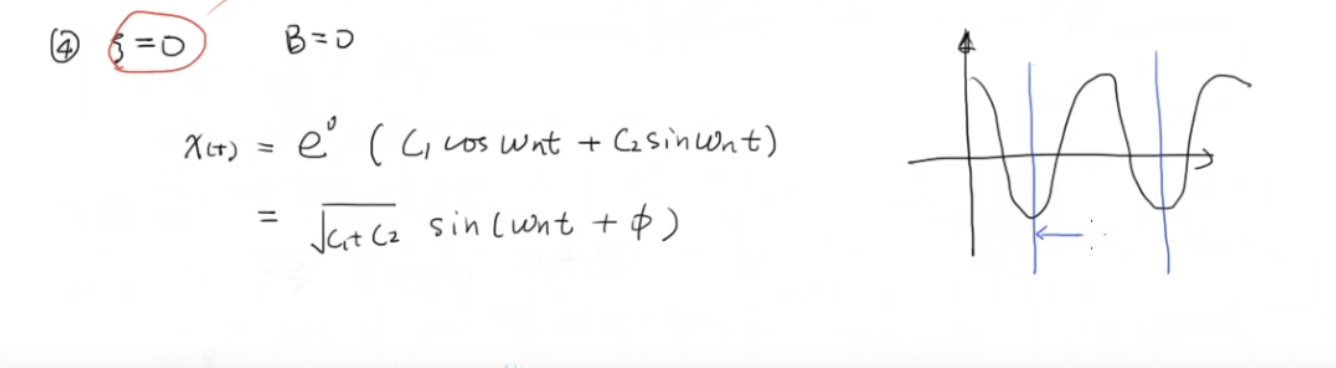 ④ ξ=0 B=0
x(t) = e⁰ ( C₁ cos wnt + C₂ sin wnt )
= √(C₁+C₂) sin(wnt + φ)